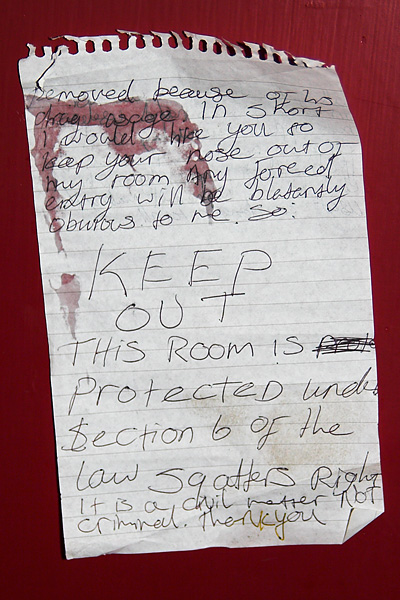 removed because of his
drug usage In short
I would like you to
keep your nose out of
my room Any forced
entry will be blatently
obvious to me. So.
KEEP
OUT
THIS ROOM IS
Protected under
Section 6 of the
law Sqatters Right
It is a civil matter NOT
criminal. thankyou